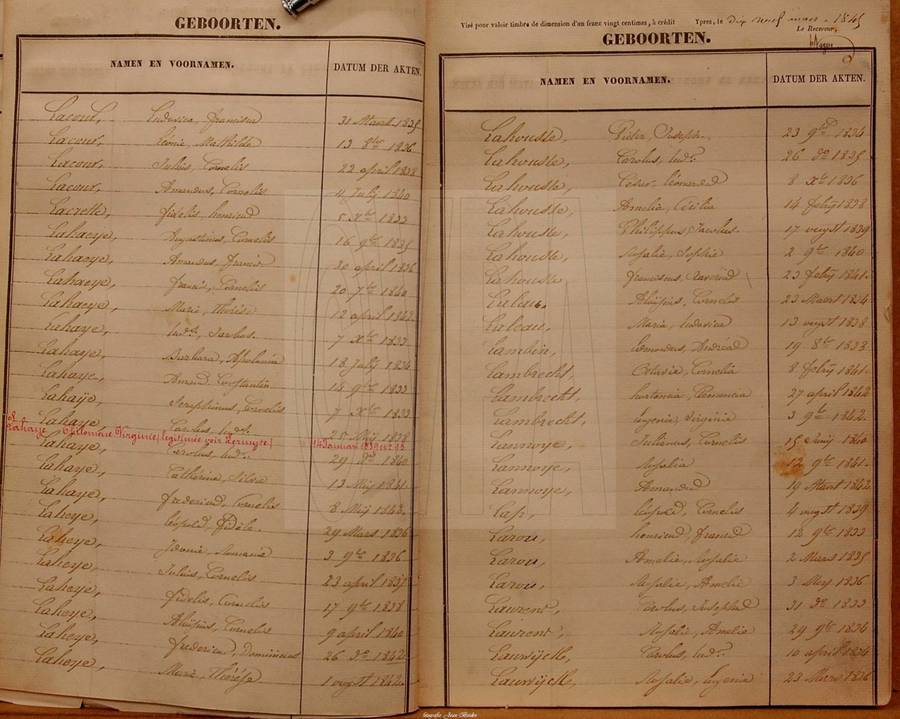 GEBOORTEN.
NAMEN EN VOORNAMEN. DATUM DER AKTEN.
Lacour, Ludovica, francisca 31 Maart 1835
Lacour, Léonie, Mathilde 13 8bre 1836
Lacour, Julius, Cornelis 22 april 1838
Lacour, Amandus, Cornelis 4 July 1840
Lacrette, fidelis, henricus 5 Xbre 1833
Lahaeye, Augustinus, Cornelis 16 9bre 1835
Lahaeye, Amandus, francis 30 april 1836
Lahaeye, francis, Cornelis 20 7bre 1840
Lahaeye, Marie, Thérèse 12 april 1842
Lahaye, Ludv. Jacobus 7 Xbre 1833
Lahaye, Barbara, Apolonia 18 July 1834
Lahaye, Amand, Constantin 14 9bre 1833
Lahaye, Seraphinus, Cornelis 7 Xbre 1833
Lahaye, Carolus, Ludv. 25 Meij 1838
Lahaye, Philomène Virginie, legitimée voir 14 Januari 1839
Lahaye, Carolus, Ludv. 29 1840
Lahaye, Catharina, 13 Meij 1841
Lahaye, fredericus, Cornelis 8 Meij 1842
Lahoye, Leopold, fidèle 29 Mars 1836
Lahoye, 3 9bre 1836
Lahoye, Julius, Cornelis 23 april 1837
Lahoye, fidelis, Cornelis 17 9bre 1838
Lahoye, Aloijsius, Cornelis 9 april 1840
Lahoye, fredericus, Dominicus 26 Xbre 1842
Lahoye, Marie, Thérèse 1 augst 1842
Visé pour valoir timbre de dimension d'un franc vingt centimes, à crédit Ypres, le dix neuf mars 1845
Le Receveur,
GEBOORTEN.
NAMEN EN VOORNAMEN. DATUM DER AKTEN.
Lahousse, Pieter Joseph 23 9bre 1834
Lahousse, Carolus, Ludv. 26 Xbre 1835
Lahousse, César, Léonard 8 Xbre 1836
Lahousse, Amelia, Cécilia 14 febry 1838
Lahousse, Philippus, Jacobus 17 augst 1839
Lahousse, Rosalie, Sophie 2 9bre 1840
Lahousse, franciscus, 23 febry 1841
Aloijsius, Cornelis 23 Maart 1834
Laleau, Maria, Ludovica 13 augst 1838
Lambin, Edmondus, 19 8bre 1833
Lambrecht, Octavia, Cornelia 8 febry 1841
Lambrecht, Clemence 27 april 1842
Lambrecht, Eugenie, Virginie 3 9bre 1842
Lamoye, Julianus, Cornelis 15 Meij 1840
Lamoye, Rosalia 12 9bre 1841
Lamoye, Amandus 19 Maart 1842
Lap, Leopold, Cornelis 4 augst 1839
Larou, henricus, francis 12 9bre 1833
Larou, Amelia, Rosalie 2 Mars 1835
Larou, Rosalie, Amelie 3 Meij 1836
Laurent, Carolus, Josephus 31 Xbre 1833
Laurent, Rosalie, Amelia 29 9bre 1836
Lauwijck, Carolus, Ludv. 10 april 1834
Lauwijck, Rosalie, Eugenia 23 Mars 1836
fotografie Jean Beirlen